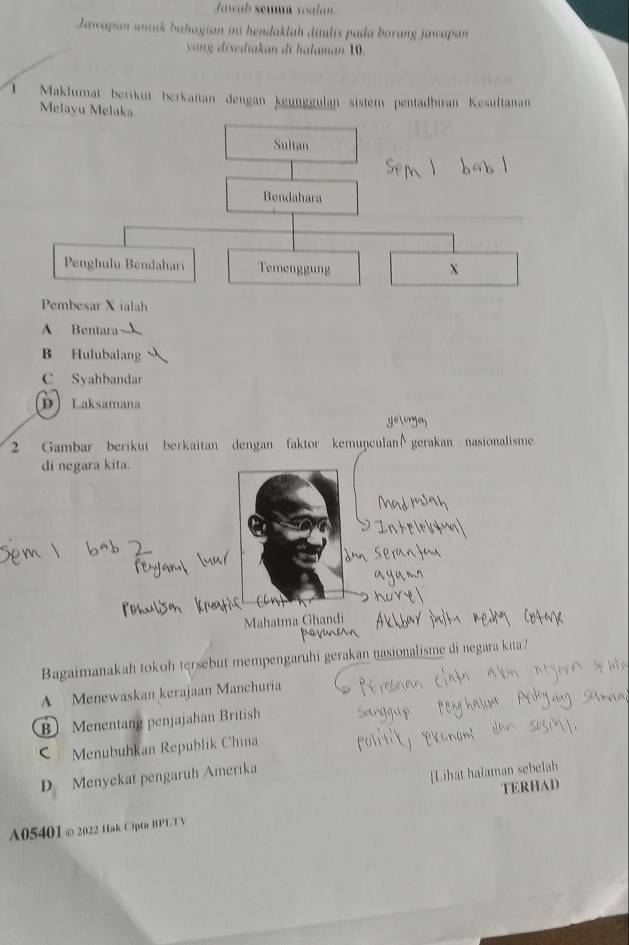 Jawab semua soalan.
Jawapan untuk bahagian ini hendaklah ditulis pada borang jawapan
yang disediakan di halaman 10.
1 Maklumat berikut berkaitan dengan keunggulan sistem pentadbiran Kesultanan
Melayu Melaka.
Sultan
sem 1 bab 1
Bendahara
Penghulu Bendahari
Temenggung
X
Pembesar X ialah
A Bentara
B Hulubalang
C Syahbandar
D Laksamana
golongan
2 Gambar berikut berkaitan dengan faktor kemunculan gerakan nasionalisme
di negara kita.
Madrasah
Intelektual
Sem 1 bab 2
luar
dan
ayam
novel
Mahatma Ghandi
Bagaimanakah tokoh tersebut mempengaruhi gerakan nasionalisme di negara kita?
Perasaan cinta akan
A Menewaskan kerajaan Manchuria
sanggup
B Menentang penjajahan British
politik, ekonomi dan
C Menubuhkan Republik China
D Menyekat pengaruh Amerika
[Lihat halaman sebelah
TERHAD
A05401 © 2022 Hak Cipta BPLTV